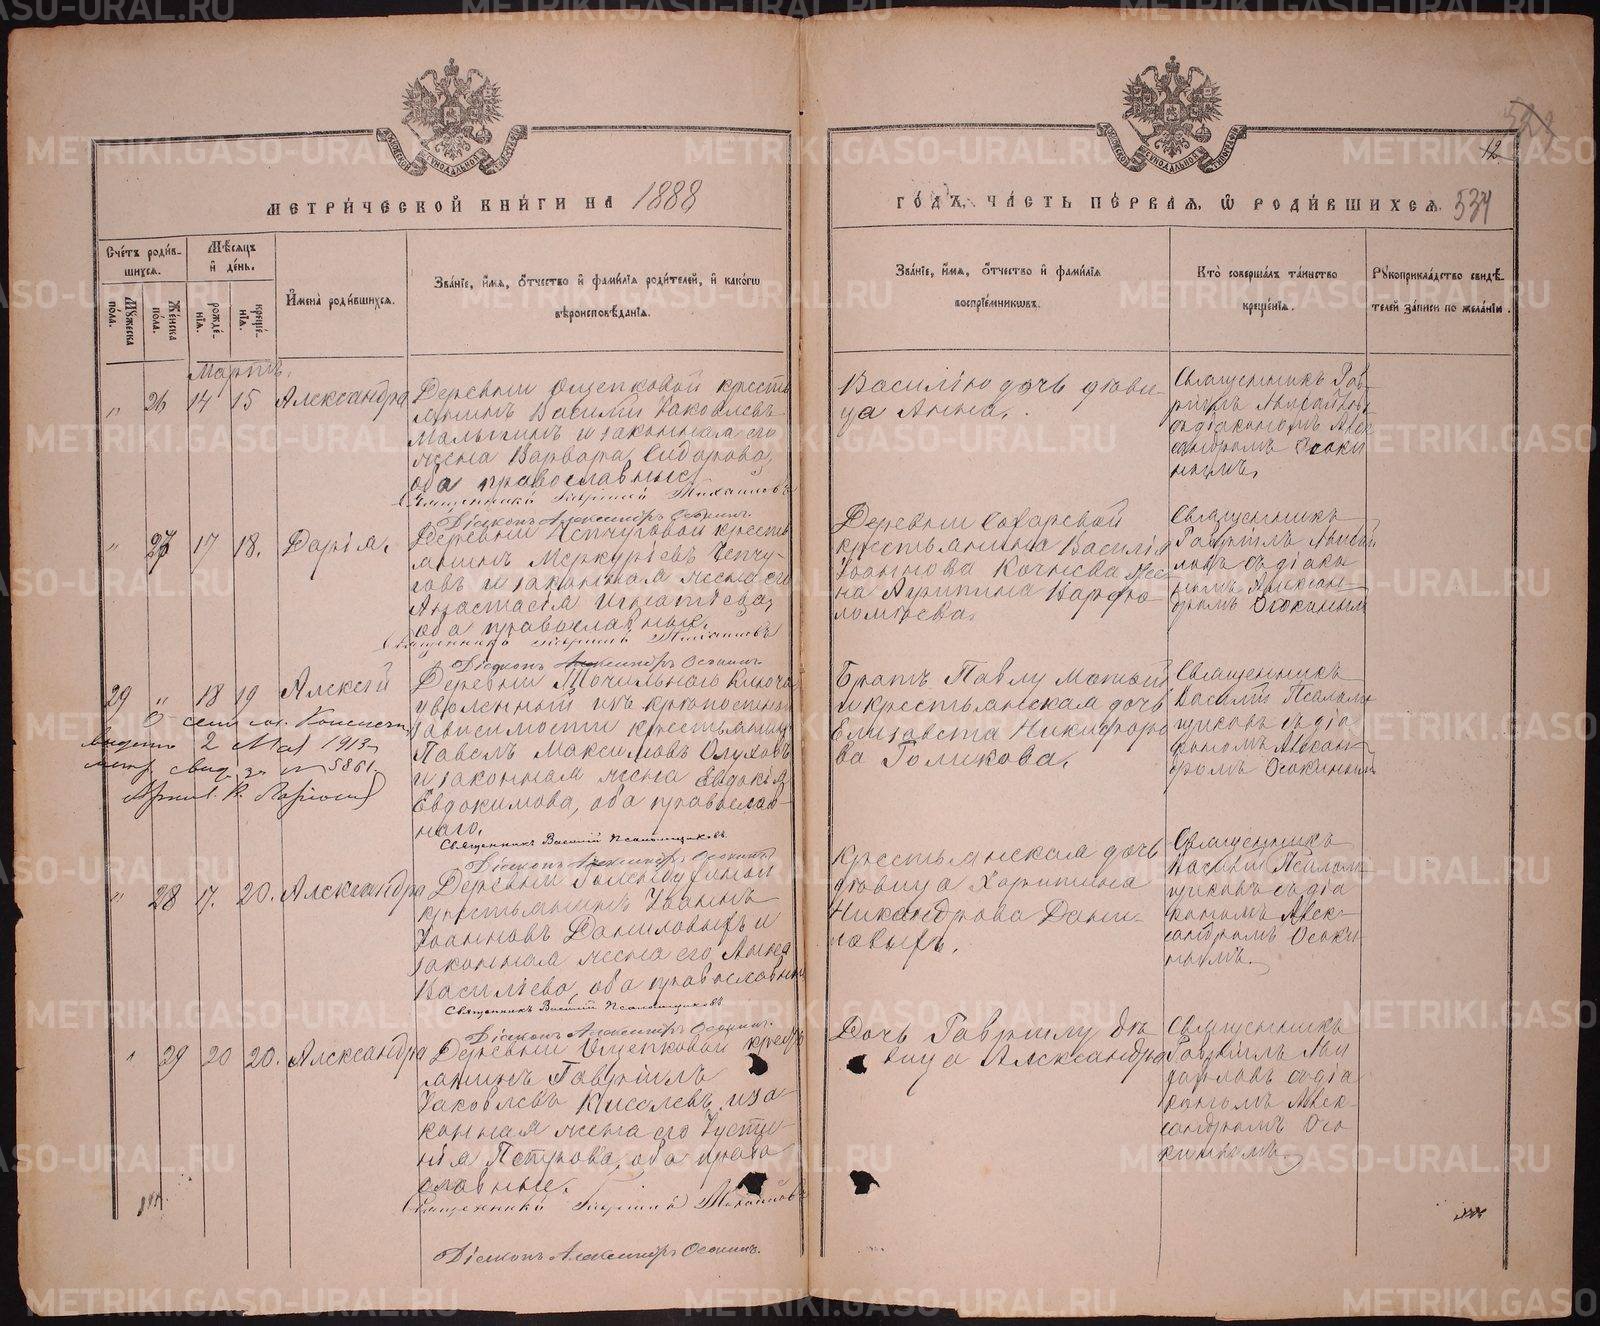 528
12
МЕТРИЧЕСКОЙ КНИГИ НА 1888
ГОДЪ, ЧАСТЬ ПЕРВАЯ, Ѿ РОДИВШИХСЯ. 534
Счетъ родив-
шихся.
Мѣсяцъ
и день.
Мꙋжеска
пола.
Женска
пола.
рожде-
нїѧ.
креще-
нїѧ.
Имена родившихся.
Званїе, имя, ѻтчество и фамилїя родителей, и какогѡ
вѣроисповѣданїя.
Званїе, имя, ѻтчество и фамилїя
воспрїемникѡвъ.
Кто совершалъ таинство
крещенїя.
Рꙋкоприкладство свидѣ-
телей записи по желанїю.
Мартъ.
" 26 14 15 Александра
Деревни Ощепковой кресть
янинъ Василій Іаковлевъ
Малыгинъ и законная его
жена Варвара Сидорова,
оба православные
Священникъ Гавріилъ Михайловъ
Діаконъ Александръ Осокинъ.
Василію дочь дѣви-
ца Анна.
Священникъ Гав-
ріилъ Михайловъ
съ діакономъ Алек
сандромъ Осоки
нымъ.
" 27 17 18. Дарія.
Деревни Чепчуговой кресть
янинъ Меркурій Чепчу-
говъ и законная жена его
Анастасія Игнатіева,
оба православные.
Священникъ Гавріилъ Михайловъ
Діаконъ Александръ Осокинъ.
Деревни Сохаревой
крестьянина Василія
Іоаннова Кочнева же-
на Агрипина Варфо-
ломѣева.
Священникъ
Гавріилъ Михай
ловъ съ діако
номъ Алексан-
дромъ Осокинымъ
29 " 18 19 Алексій
О сем м. Консист.
выдано 2 Мая 1913
метр. свид. за № 5861.
Деревни Точильнаго Ключа
уволенный изъ крѣпостной
зависимости крестьянинъ
Павелъ Максимовъ Олуховъ
и законная жена Евдокія
Евдокимова, оба православ-
наго.
Священникъ Василій Псаломщиковъ.
Діаконъ Александръ Осокинъ
Братъ Павлу Матѳей
и крестьянская дочь
Елизавета Никифоро
ва Голикова.
Священникъ
Василій Псалом
щиковъ съ діа
кономъ Алексан-
дромъ Осокинымъ
" 28 17. 20. Александра
Деревни
крестьянинъ Іоаннъ
Іоанновъ Даниловыхъ и
законная жена его Анна
Василіева, оба православные
Священникъ Василій Псаломщиковъ
Діаконъ Александръ Осокинъ.
Крестьянская дочь
дѣвица Харитина
Никандрова Дани-
ловыхъ.
Священникъ
Василій Псалом
щиковъ съ діа
кономъ Алек-
сандромъ Осоки-
нымъ.
" 29 20 20. Александра
Деревни Ощепковой кресть
янинъ Гавріилъ
Іаковлевъ Киселевъ и за
конная жена его Іусти-
нія Петрова, оба право
славные.
Священникъ Гавріилъ Михайловъ
Діаконъ Александръ Осокинъ.
Дочь Гаврiилу дѣ
вица Александра
Священникъ
Гавріилъ Ми
хайловъ съ діа
кономъ Алек-
сандромъ Осо
кинымъ.
METRIKI.GASO-URAL.RU